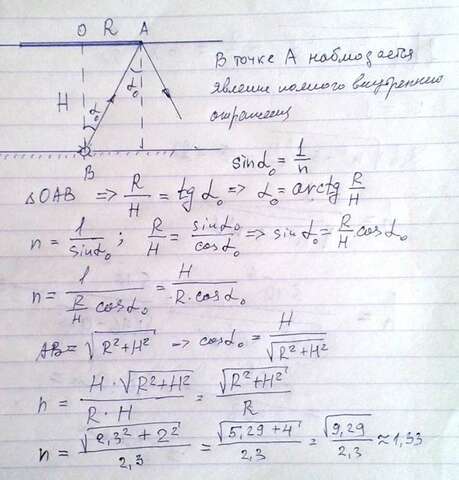 O R A
H
α₀ α₀
B
В точке А наблюдается
явление полного внутреннего
отражения
sinα₀ = 1/n
△OAB => R/H = tg α₀ => α₀ = arctg R/H
n = 1/sinα₀ ; R/H = sinα₀/cosα₀ => sinα₀ = R/H cosα₀
n = 1/(R/H cosα₀) = H/(R·cosα₀)
AB = √(R²+H²) -> cosα₀ = H/√(R²+H²)
n = H·√(R²+H²)/(R·H) = √(R²+H²)/R
n = √(2,3²+2²)/2,3 = √(5,29+4)/2,3 = √9,29/2,3 ≈ 1,33